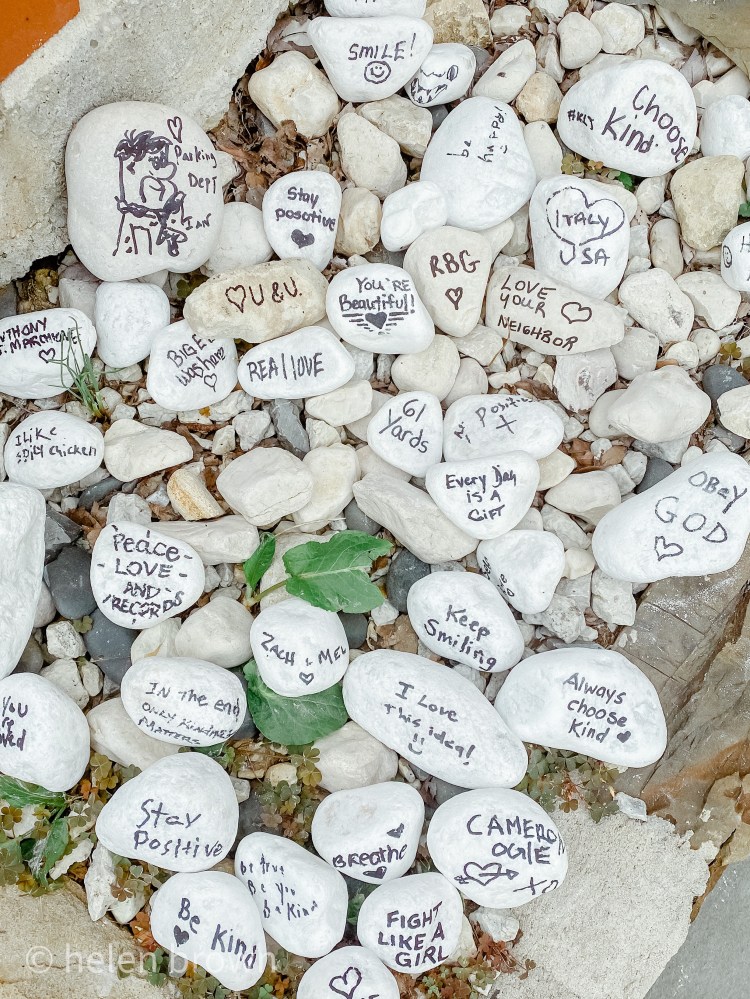 SMILE!
#KLJ
Choose
Kind.
be
happy!
Parking
Dept
IAN
Stay
posotive
ITALY
USA
RBG
U & U.
You're
Beautiful!
LOVE
YOUR
NEIGHBOR
was here
REAL LOVE
61
Yards
Positive
X
I Like
spicy chicken
Every Day
is a
Gift
OBEY
GOD
Peace
- LOVE -
AND
RECORDS
Keep
Smiling
ZACH & MEL
In the end
ONLY KINDNESS
MATTERS
I Love
this idea!
Always
choose
Kind
You
Stay
Positive
Breathe
CAMERON
OGLE
be true
Be you
be Kind
Be Kind
FIGHT
LIKE A
GIRL
© helen brown